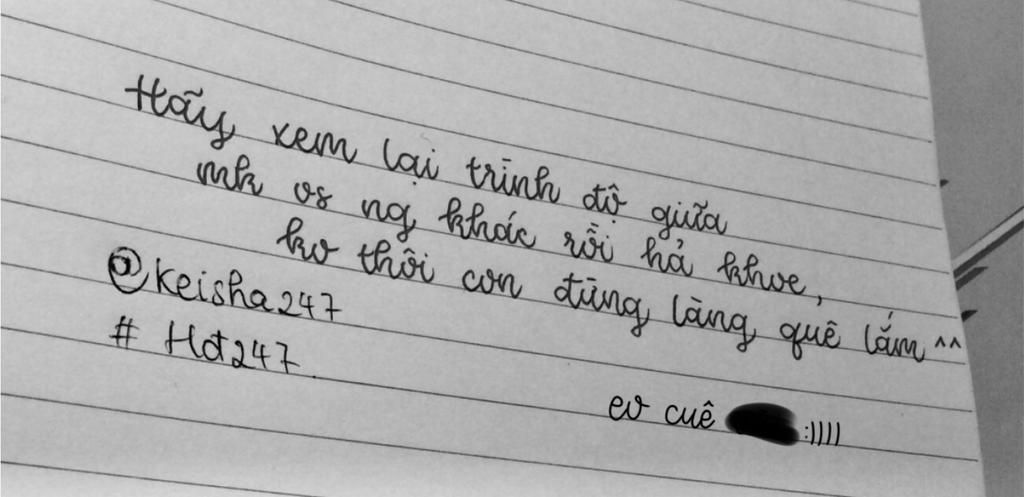 Hãy xem lại trình độ giữa
mk vs ng khác rồi hả khoe,
ko thôi con đũng làng quê lắm ^^
@keisha247
# Hđ247
ev cuê :))))